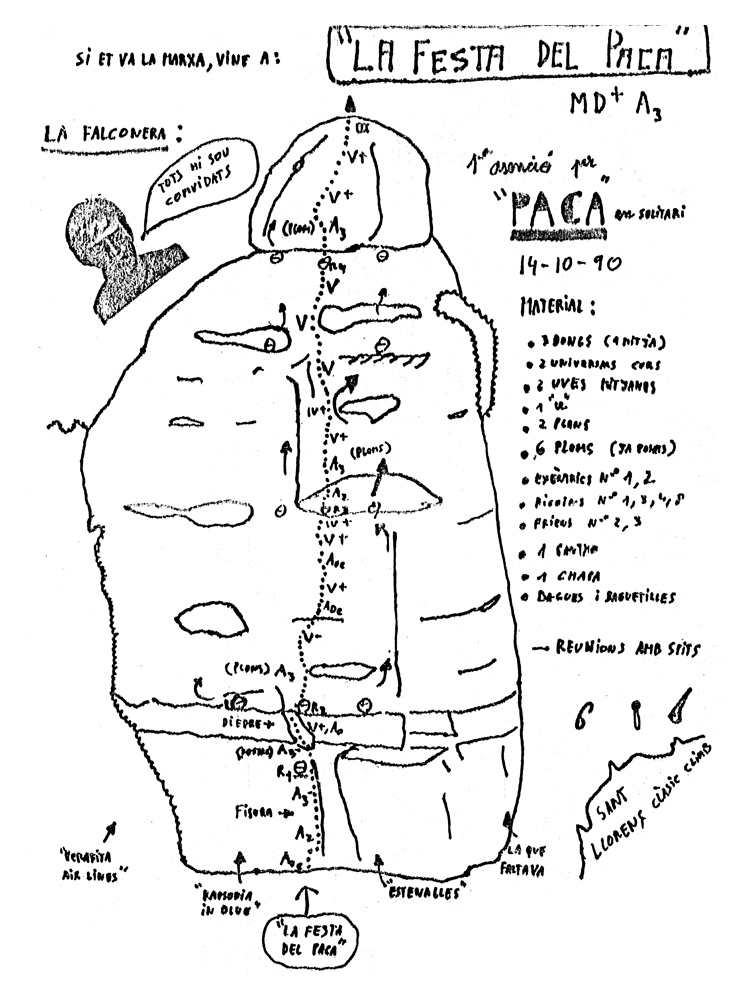 SI ET VA LA MARXA, VINE A:
"LA FESTA DEL PACA"
MD+ A3
LA FALCONERA:
TOTS HI SOU
CONVIDATS
1ª ascenció per
"PACA" en SOLITARI
14-10-90
MATERIAL:
2 UNIVERSALS CURS
2 UVES MITJANES
1 "U"
2 PLANS
6 PLOMS
Nº 1, 2
Nº 1, 3, 4, 8
FRIENS Nº 2, 3
1 GANTXO
1 CHAPA
DAGUES I BAGUETILLES
→ REUNIONS AMB SPITS
SANT
LLORENÇ CLÀSSIC CLIMB
V+
V+
(PLOMS) A3
R4
V
V
V
IV+
V+
(PLOMS)
A3
A2
R3
IV+
V+
A0e
V+
A0e
V-
(PLOMS) A3
R2
DIEDRE →
V+, A0
R1
A3-
FISURA →
A2
"VERAFITA
AIR LINES"
"RAPSODIA
IN BLUE"
"ESTENALLES"
LA QUE
FALTAVA
"LA FESTA
DEL PACA"